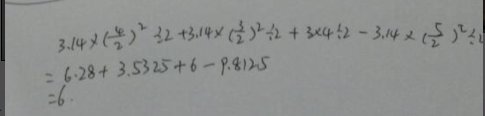 3.14×(4/2)²÷2+3.14×(3/2)²÷2+3×4÷2-3.14×(5/2)²÷2
=6.28+3.5325+6-9.8125
=6.